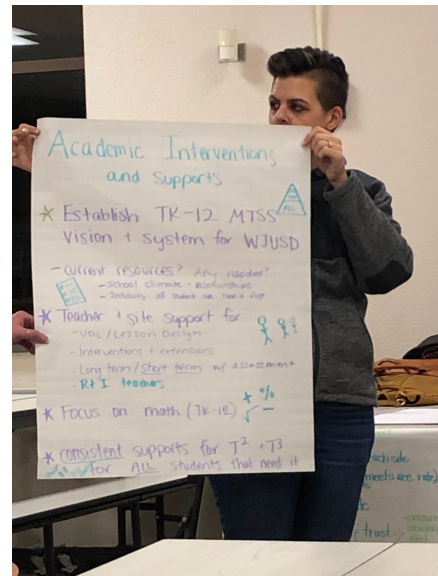 Academic Interventions
and supports
* Establish TK-12 MTSS
Vision + system for WJUSD
ALL
- current resources? Any needed?
- School climate + relationships
- all student on
* Teacher + site support for
- UDL/Lesson Design
- Interventions + extensions
- Long term/short term w/ assessment
- RtI teachers
* Focus on math (TK-12)
+ %
√ −
* consistent supports for T2 + T3
for ALL students that need it
trust